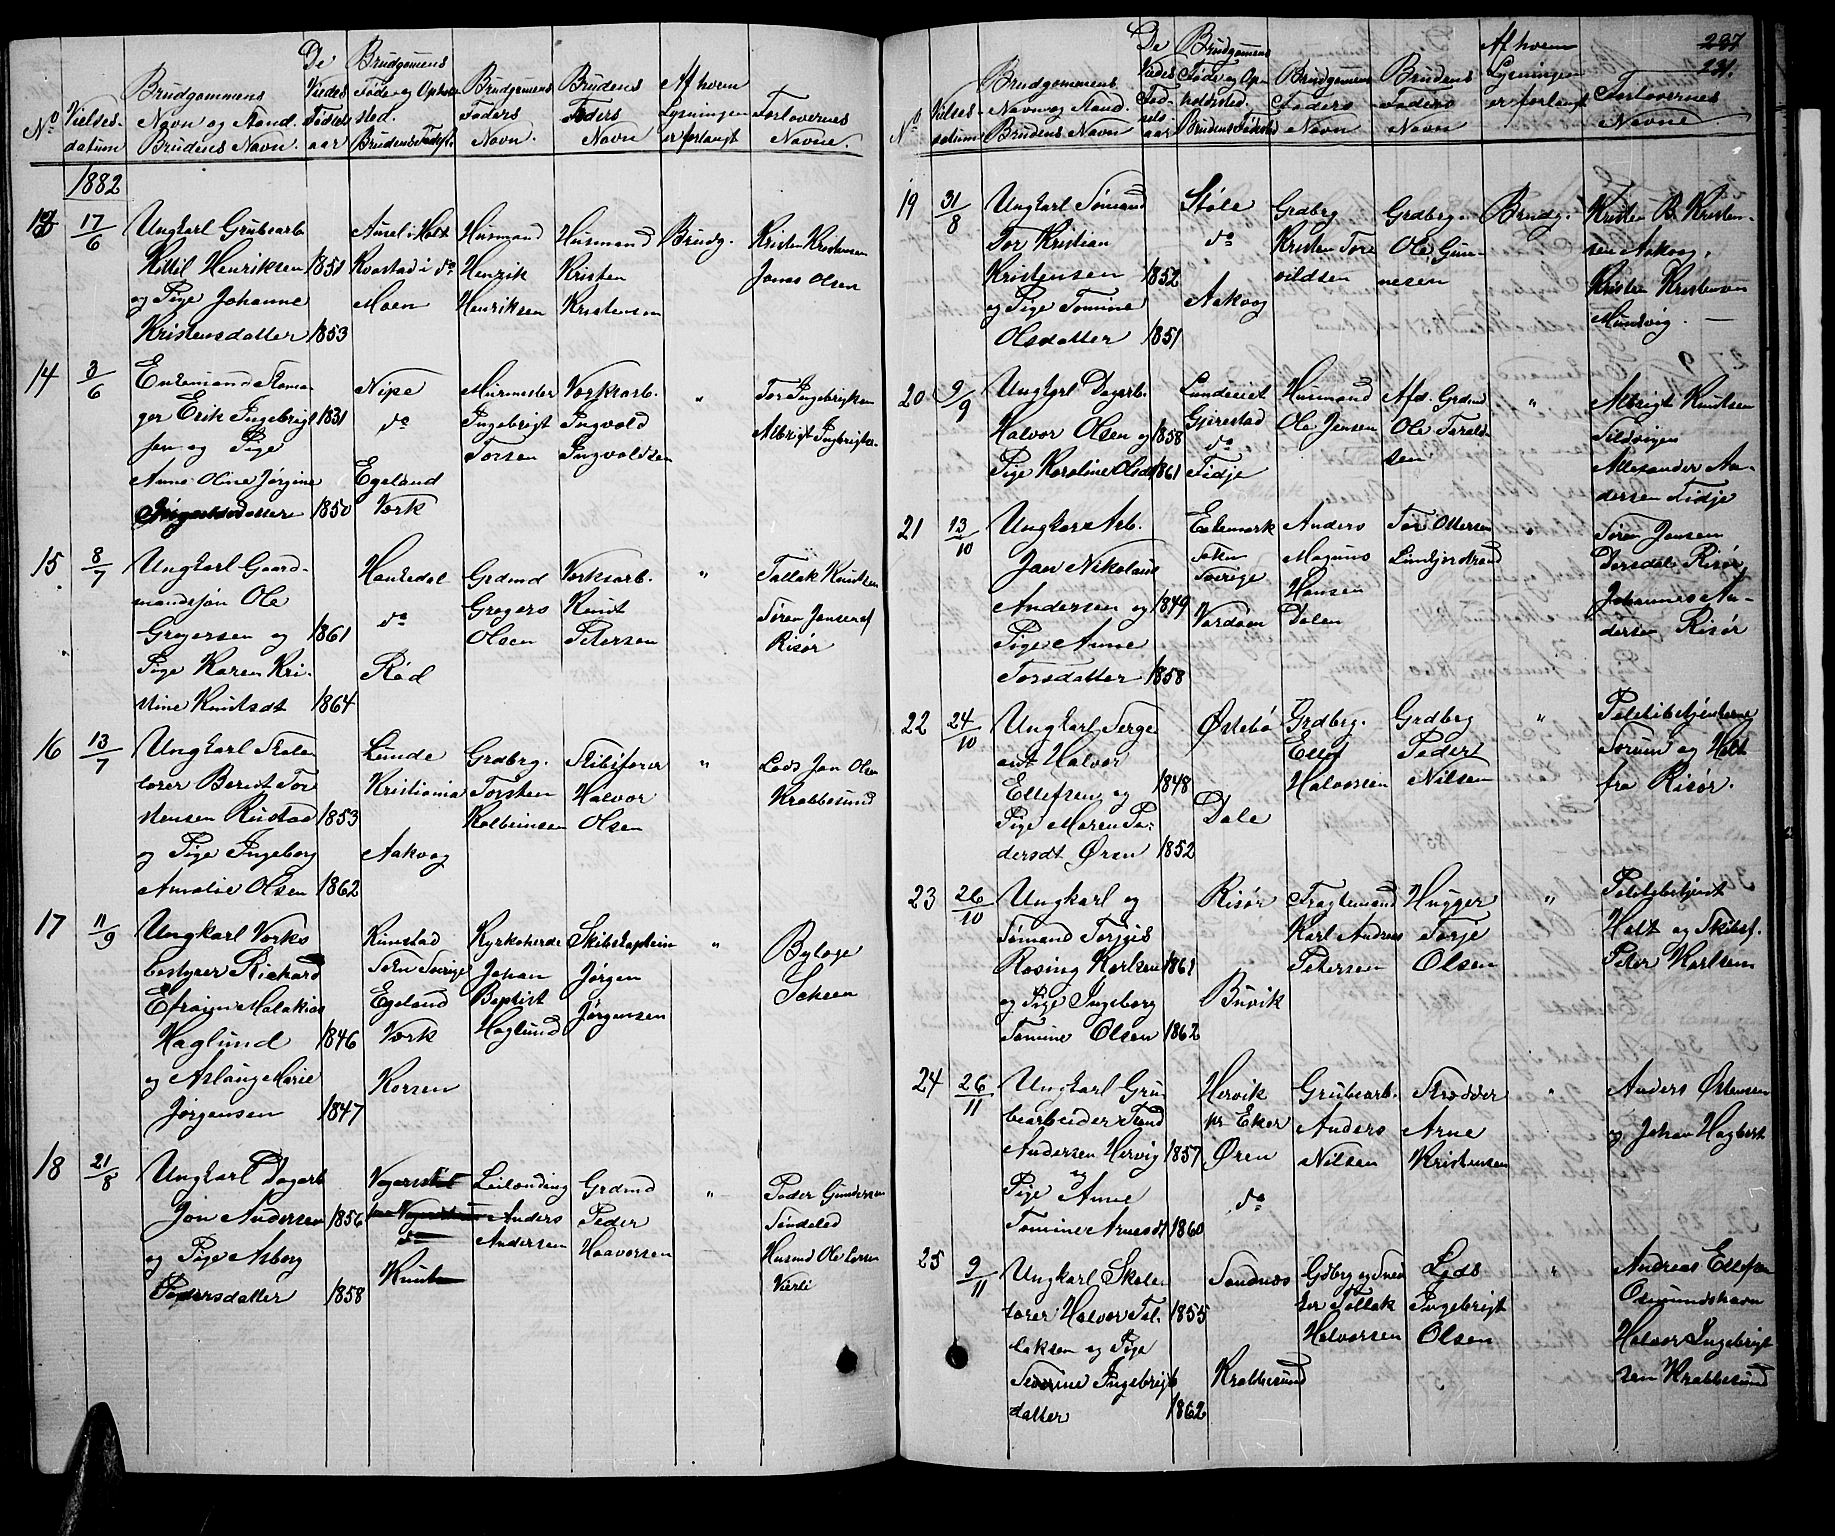 No
Vielses-
datum
Brudgommens
Navn og Stand.
Brudens Navn.
De
Viedes
Fødsels
aar
Brudgomens
Føde og Opholds
sted.
Brudens Fødest.
Brudgomens
Faders
Navn.
Brudens
Faders
Navn
Af hvem
Lysningen
er forlangt
Forlovernes
Navne.
1882
13
17/6
Ungkarl Grubearb
Kittil Henriksen 1851
og Pige Johanne
Kristensdatter 1853
Aursel i Holt
Kvastad i do
Moen
Husmand
Henrik
Henriksen
Husmand
Kristen
Kristensen
Brudg.
Kristen Kristensen
Jonas Olsen
14
3/6
Enkemand
Erik Ingebrigt
sen og Pige
Anne Oline Jørgine
1831
1850
Nipe
do
Egeland
Værk
Murmester
Ingebrigt
Torsen
Værksarb.
Ingvald
Ingvaldsen
"
Tor Ingebrigtsen
Albrigt Ingbrigts.
15
8/7
Ungkarl Gaard-
mandssøn Ole
Gregersen og 1861
Pige Karen Kri-
stine Knutsdt 1864
Haukedal
do
Rød
Grdmd
Gregers
Olsen
Værksarb.
Knut
Petersen
"
Tallak Knutsen
Søren Jensen af
Risør
16
13/7
Ungkarl Skole-
lærer Berent Tor
stensen Rustad 1853
og Pige Ingeborg
Amalie Olsen 1862
Lunde
Kristiania
Aakvag
Grdbrg.
Torsten
Kolbeinsen
Skibsfører
Halvor
Olsen
"
Lods Jan Olsen
Krabbesund
17
11/9
Ungkarl Værks
bestyrer Rickard
Efraim Malakias
Haglund 1846
og Aslaug Marie
Jørgensen 1847
Rumstad
Sverige
Egeland
Værk
Korsen
Kyrkoherde
Johan
Baptist
Haglund
Skibskaptein
Jørgen
Jørgensen
"
Byfoge
Scheen
18
21/8
Ungkarl Dagarb
Jon Andersen 1856
og Pige Asborg
Pedersdatter 1858
Leilænding
Anders
Andersen
Grdmd
Peder
Haavorsen
"
Peder Gundersen
Søndeled
Husmd Ole Larsen
Værli
237
231.
No
Vielses-
datum
Brudgommens
Navn og Stand.
Brudens Navn
De
Viedes
Fød-
sels
aar
Brudgomens
Føde og Op-
holdssted.
Brudens Fødested
Brudgomens
Faders
Navn
Brudens
Faders
Navn
Af hvem
Lysningen
er forlangt
Forlovernes
Navne
19
31/8
Ungkarl Sømand
Tor Kristian
Kristensen 1852
og Pige Tomine
Olsdatter 1851
Støle
do
Aakvag
Grdbrg
Kristen Tor
vildsen
Grdbrg.
Ole Gun-
nesen
Brudg.
Kristen B. Kristen-
sen Aakvag,
Kristen Kristensen
Mundvig.
20
9/9
Ungkarl Dagarb.
Halvor Olsen og 1858
Pige Karoline Olsdt 1861
Lundeiet
Gjerestad
do
Fidje
Husmand
Ole Jensen
Afd. Grdmd
Ole Tarald-
sen
"
Albrigt Knutsen
Sildvigen
Alexander An-
dersen Fidje
21
13/10
Ungkarl Arb.
Jan Nikolaus
Andersen og 1849
Pige Anne
Torsdatter 1858
Sokn
Sverige
Anders
Magnus
Hansen
Dalen
Tor Ottersen
"
Søren Jensen
Risør
Johannes An-
dersen Risør
22
24/10
Ungkarl Serge
ant Halvor
Ellefsen og 1848
Pige Maren Pe-
dersdt Øren 1852
Østebø
Dale
Grdbrg.
Ellef
Halvorsen
Grdbrg
Peder
Nilsen
"
Politibetjenterne
og Holt
fra Risør.
23
26/10
Ungkarl og
Sømand Torjus
Rosing Karlsen 1861
og Pige Ingeborg
Tomine Olsen 1862
Risør
Buvik
Fragtemand
Karl Andreas
Petersen
Hugger
Torje
Olsen
"
Politibetjent
Holt og Skibsf.
Peter Karlsen
24
26/11
Ungkarl Gru
bearbeider Trond
Andersen Hervig 1857
og
Pige Anne
Tomine Arnesdt 1860
Hervik
pr Eker
Øren
do
Grubearb.
Anders
Nilsen
Skrædder
Arne
Kristensen
"
Anders Østensen
og Johan Hagbert
25
9/11
Ungkarl Skole
lærer Halvor Tal- 1855
laksen og Pige
Severine Ingebrigt
datter 1862
Sandnæs
Krabbesund
Gdbrg og Sned
ker Tallak
Halvorsen
Lods
Ingebrigt
Olsen
"
Andreas Ellefsen
Osmundshavn
Halvor Ingebrigt
sen Krabbesund